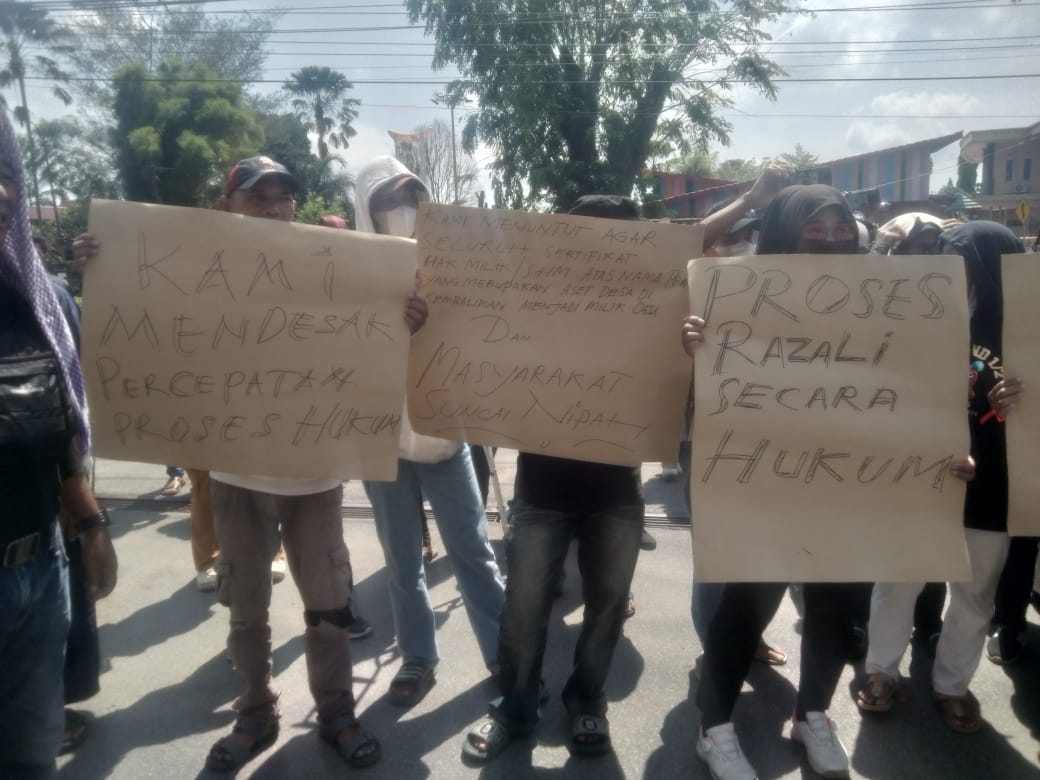 KAMI
MENDESAK
PERCEPATAN
PROSES HUKUM
KAMI MENUNTUT AGAR
SELURUH SERTIFIKAT
HAK MILIK/SHM ATAS NAMA
YANG MERUPAKAN ASET DESA DI
KEMBALIKAN MENJADI MILIK DESA
DAN
MASYARAKAT
SUNGAI NIPAH
PROSES
RAZALI
SECARA
HUKUM